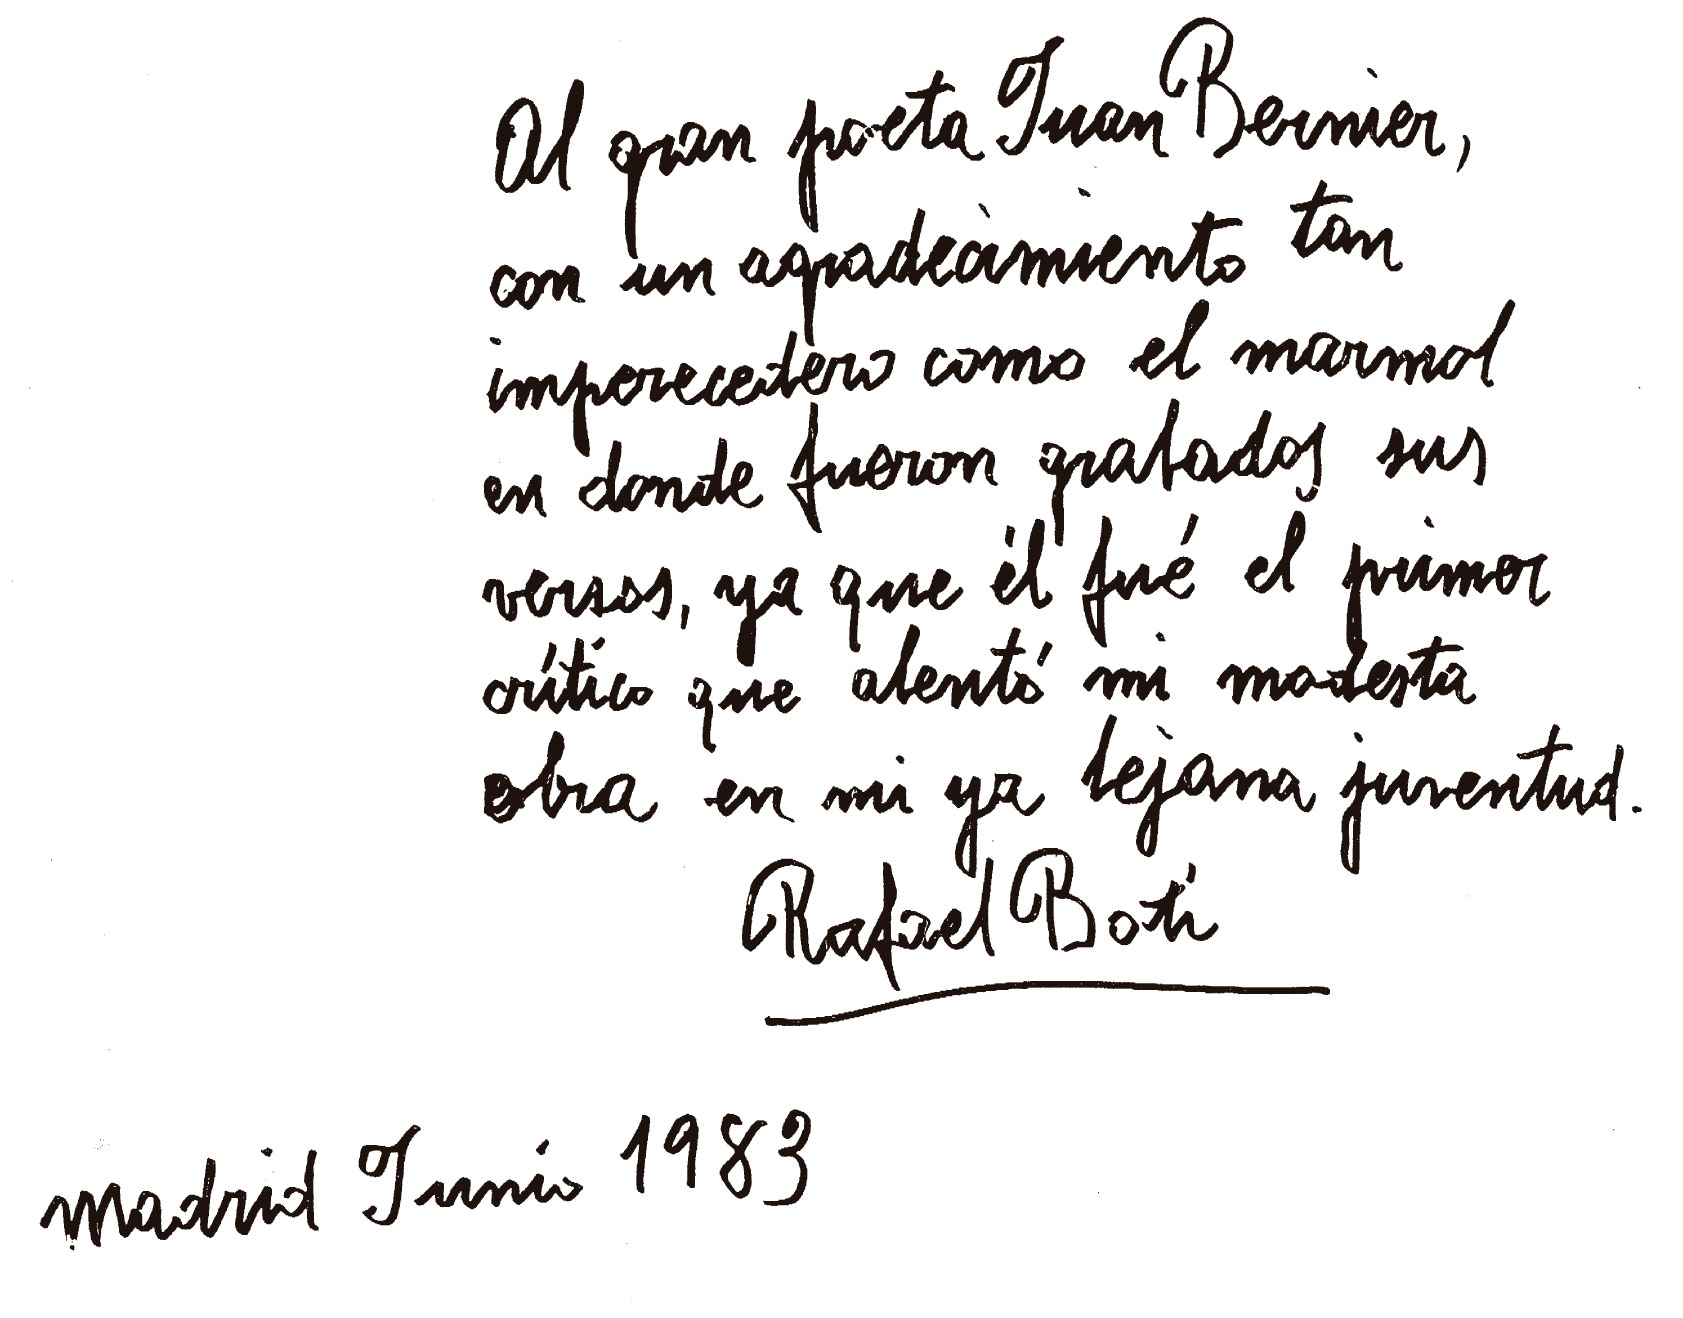 Al gran poeta Juan Bernier,
con un agradecimiento tan
imperecedero como el marmol
en donde fueron grabados sus
versos, ya que él fué el primer
crítico que alentó mi modesta
obra en mi ya lejana juventud.
Rafael Botí
Madrid Junio 1983